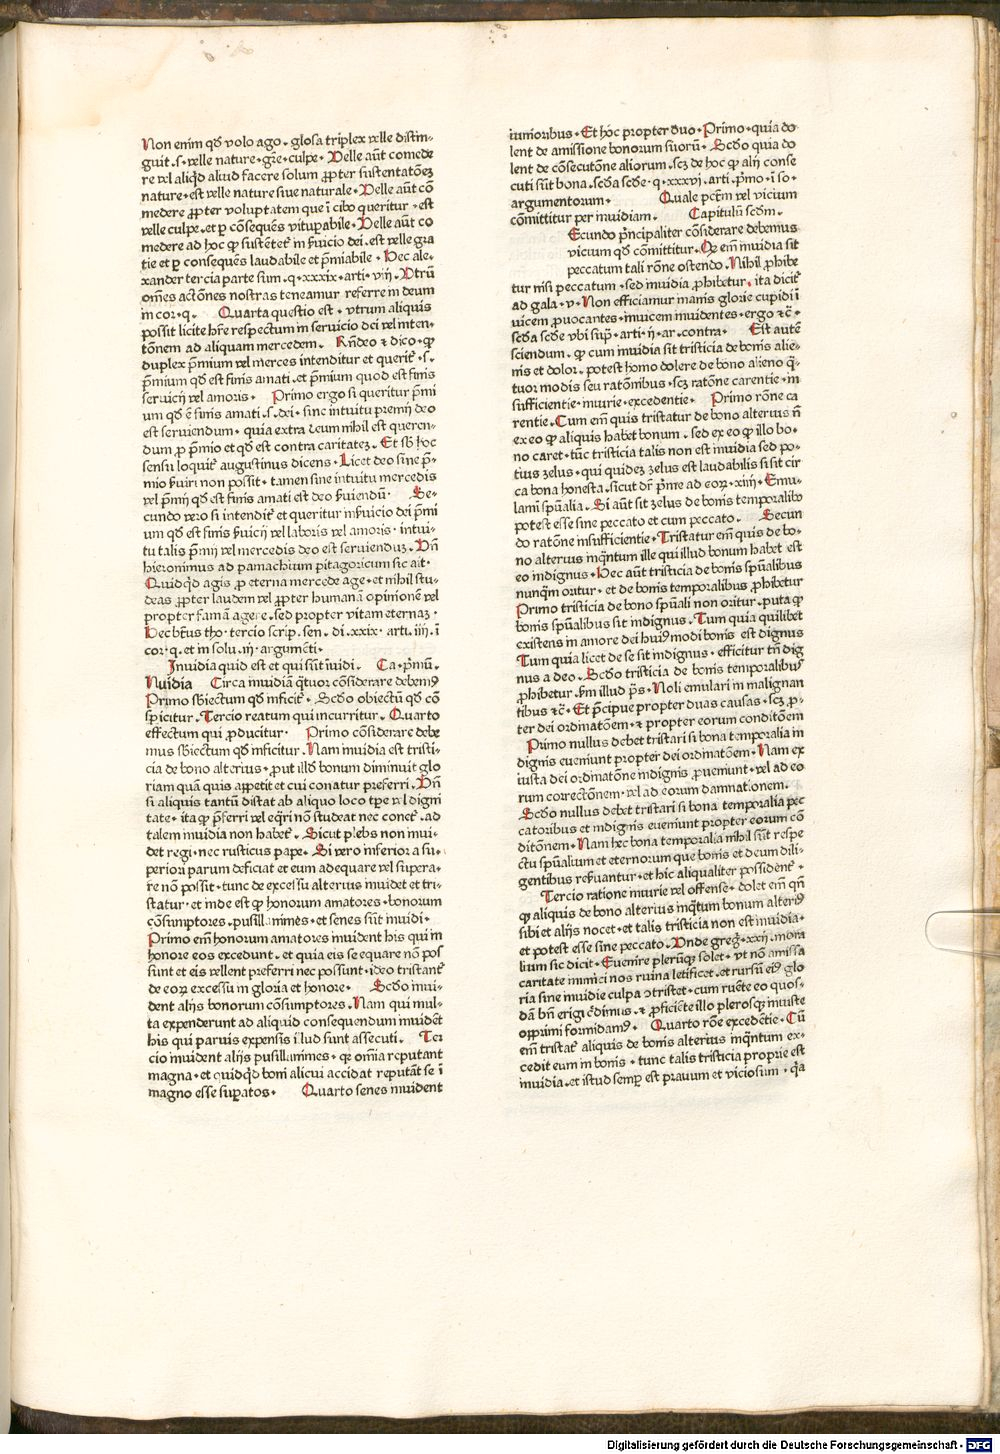 Non enim qd volo ago. glosa triplex velle distin-
guit .s. velle nature. gr̄e. culpe. Velle aūt comede
re vel aliqd aliud facere solum ꝓpter sustentatōeꝫ
nature. est velle nature siue naturale. Velle aūt cō
medere ꝓpter voluptatem que ī cibo queritur. est
velle culpe. et ꝑ cōsequēs vituꝑabile. Velle aūt co
medere ad hoc ꝙ sustētet᷑ in ẜuicio dei. est velle gra
tie et ꝑ consequēs laudabile et p̄miabile. Hec ale-
xander tercia parte sum. q. xxxix. arti. viij. Vtrū
om̄es actōnes nostras teneamur referre in deum
in cor. q. Quarta questio est. vtrum aliquis
possit licite hr̄e respectum in seruicio dei vel inten-
tōnem ad aliquam mercedem. Rn̄deo ⁊ dico. ꝙ
duplex p̄mium vel merces intenditur et querit᷑ .s.
p̄mium qd est finis amati. et p̄mium quod est finis
seruicij vel amoris. Primo ergo si queritur p̄mi
um qd ē finis amati .s. dei. sine intuitu premij deo
est seruiendum. quia extra deum nihil est queren-
dum ꝓ p̄mio et qd est contra caritateꝫ. Et sb hoc
sensu loquit᷑ augustinus dicens. Licet deo sine p̄-
mio ẜuiri non possit. tamen sine intuitu mercedis
vel p̄mij qd est finis amati est deo ẜuiendū. Se-
cundo vero si intendit᷑ et queritur in ẜuicio dei p̄mi
um qd est finis ẜuicij vel laboris vel amoris. intui-
tu talis p̄mij vel mercedis deo est seruienduꝫ. Vn̄
hieronimus ad pamachium pitagoricum sic ait.
Quidqd agis ꝓ eterna mercede age. et nihil stu-
deas ꝓpter laudem vel ꝓpter humanā opinionē vel
propter famā agere. sed propter vitam eternaꝫ.
Hec btūs tho. tercio scrip. sen. di. xxix. arti. iiij. ī
cor. q. et in solu. iij. argumēti.
Inuidia quid est et qui sūt īuidi. Ca. p̄mū.
Nuidia Circa inuidiā q̄tuor cōsiderare debemꝰ
Primo sbiectum qd inficit᷑. Scd̄o obiectū qd cō
spicitur. Tercio reatum qui incurritur. Quarto
effectum qui ꝓducitur. Primo cōsiderare debe
mus sbiectum qd inficitur. Nam inuidia est tristi-
cia de bono alterius. put illd bonum diminuit glo
riam quā quis appetit et cui conatur preferri. Vn̄
si aliquis tantū distat ab aliquo loco tpe vel digni
tate. ita ꝙ p̄ferri vel eq̄ri nō studeat nec conet᷑. ad
talem inuidia non habet᷑. Sicut plebs non inui-
det regi. nec rusticus pape. Si vero inferior a su-
periori parum deficiat et eum adequare vel supera-
re nō possit. tunc de excessu alterius inuidet et tri-
statur. et inde est ꝙ honorum amatores. bonorum
cōsumptores. pusillanimes. et senes sūt inuidi.
Primo em̄ honorum amatores inuident his qui in
honore eos excedunt. et quia eis se equare nō pos
sunt et eis vellent preferri nec possunt. ideo tristant᷑
de eoꝝ excessu in gloria et honore. Scd̄o inui-
dent alijs bonorum cōsumptores. Nam qui mul-
ta expenderunt ad aliquid consequendum inuidēt
his qui paruis expensis illud sunt assecuti. Ter
cio inuident alijs pusillanimes. qr om̄ia reputant
magna. et quidqd boni alicui accidat reputāt se ī
magno esse suꝑatos. Quarto senes inuident
iunioribus. Et hoc propter duo. Primo. quia do
lent de amissione bonorum suorū. Scd̄o quia do
lent de cōsecutōne aliorum. sꝫ de hoc ꝙ alij conse
cuti sūt bona. scd̄a scd̄e. q. xxxvi. arti. p̄mo. ī so.
argumentorum. Quale pctm̄ vel vicium
cōmittitur per inuidiam. Capitulū scd̄m.
Ecundo p̄ncipaliter cōsiderare debemus
vicium qd cōmittitur. Qꝫ em̄ inuidia sit
peccatum tali rōne ostendo. Nihil ꝓhibe
tur nisi peccatum. sed inuidia ꝓhibetur. ita dicit᷑
ad gala. v. Non efficiamur inanis glorie cupidi ī
uicem ꝓuocantes. inuicem inuidentes. ergo ⁊c̄.
scd̄a scd̄e vbi sup̄. arti. ij. ar. contra. Est autē
sciendum. ꝙ cum inuidia sit tristicia de bonis alie-
nis et dolor. potest homo dolere de bono alieno q̄-
tuor modis seu ratōnibus. sꝫ ratōne carentie. in
sufficientie. iniurie. excedentie. Primo rōne ca
rentie. Cum em̄ quis tristatur de bono alterius n̄
ex eo ꝙ aliquis habet bonum. sed ex eo ꝙ illo bo-
no caret. tūc tristicia talis non est inuidia sed po-
tius zelus. qui quideꝫ zelus est laudabilis si sit cir
ca bona honesta. sicut dr̄ p̄me ad coꝝ. xiiij. Emu-
lami sp̄ualia. Si aūt sit zelus de bonis temporalibꝰ
potest esse sine peccato et cum peccato. Secun
do ratōne insufficientie. Tristatur em̄ quis de bo-
no alterius inq̄ntum ille qui illud bonum habet est
eo indignus. Hec aūt tristicia de bonis sp̄ualibus
nunq̄m oritur. et de bonis temporalibus ꝓhibetur
Primo tristicia de bono sp̄uali non oritur. puta ꝙ
bonis sp̄ualibus sit indignus. Tum quia quilibet
existens in amore dei huiꝰmodi bonis est dignus
Tum quia licet de se sit indignus. efficitur tn̄ dig
nus a deo. Scd̄o tristicia de bonis temporalibꝰ
ꝓhibetur. ẜm illud p̄s. Noli emulari in malignan
tibus ⁊c̄. Et p̄cipue propter duas causas. sꝫ ꝓ-
ter dei ordinatōem. ⁊ propter eorum conditōem
Primo nullus debet tristari si bona temporalia in
dignis eueniunt propter dei ordinatōem. Nam ex
iusta dei ordinatōne indignis ꝓueniunt. vel ad eo
rum correctōnem. vel ad eorum damnationem.
Scd̄o nullus debet tristari si bona temporalia pec
catoribus et indignis eueniunt propter eorum cō
ditōnem. Nam hec bona temporalia nihil sūt respe
ctu sp̄ualium et eternorum que bonis et deum dili-
gentibus reẜuantur. et hic aliqualiter possident᷑.
Tercio ratione iniurie vel offense. dolet em̄ qn̄
ꝙ aliquis de bono alterius inq̄tum bonum alteriꝰ
sibi et alijs nocet. et talis tristicia non est inuidia.
et potest esse sine peccato. Vnde greg. xxij. mora
lium sic dicit. Euenire pleruꝫ solet. vt nō amissa
caritate inimici nos ruina letificet. et rursū eiꝰ glo
ria sine inuidie culpa ↄtristet. cum ruēte eo quos-
dā bn̄ erigi c̄dimus. ⁊ ꝓficiēte illo plerosqꝫ iniuste
opprimi formidamꝰ. Quarto rōe excedētie. Cū
em̄ tristat᷑ aliquis de bonis alterius inq̄ntum ex-
cedit eum in bonis. tunc talis tristicia proprie est
inuidia. et istud semꝑ est prauum et viciosum. qꝛ
Digitalisierung gefördert durch die Deutsche Forschungsgemeinschaft - DFG